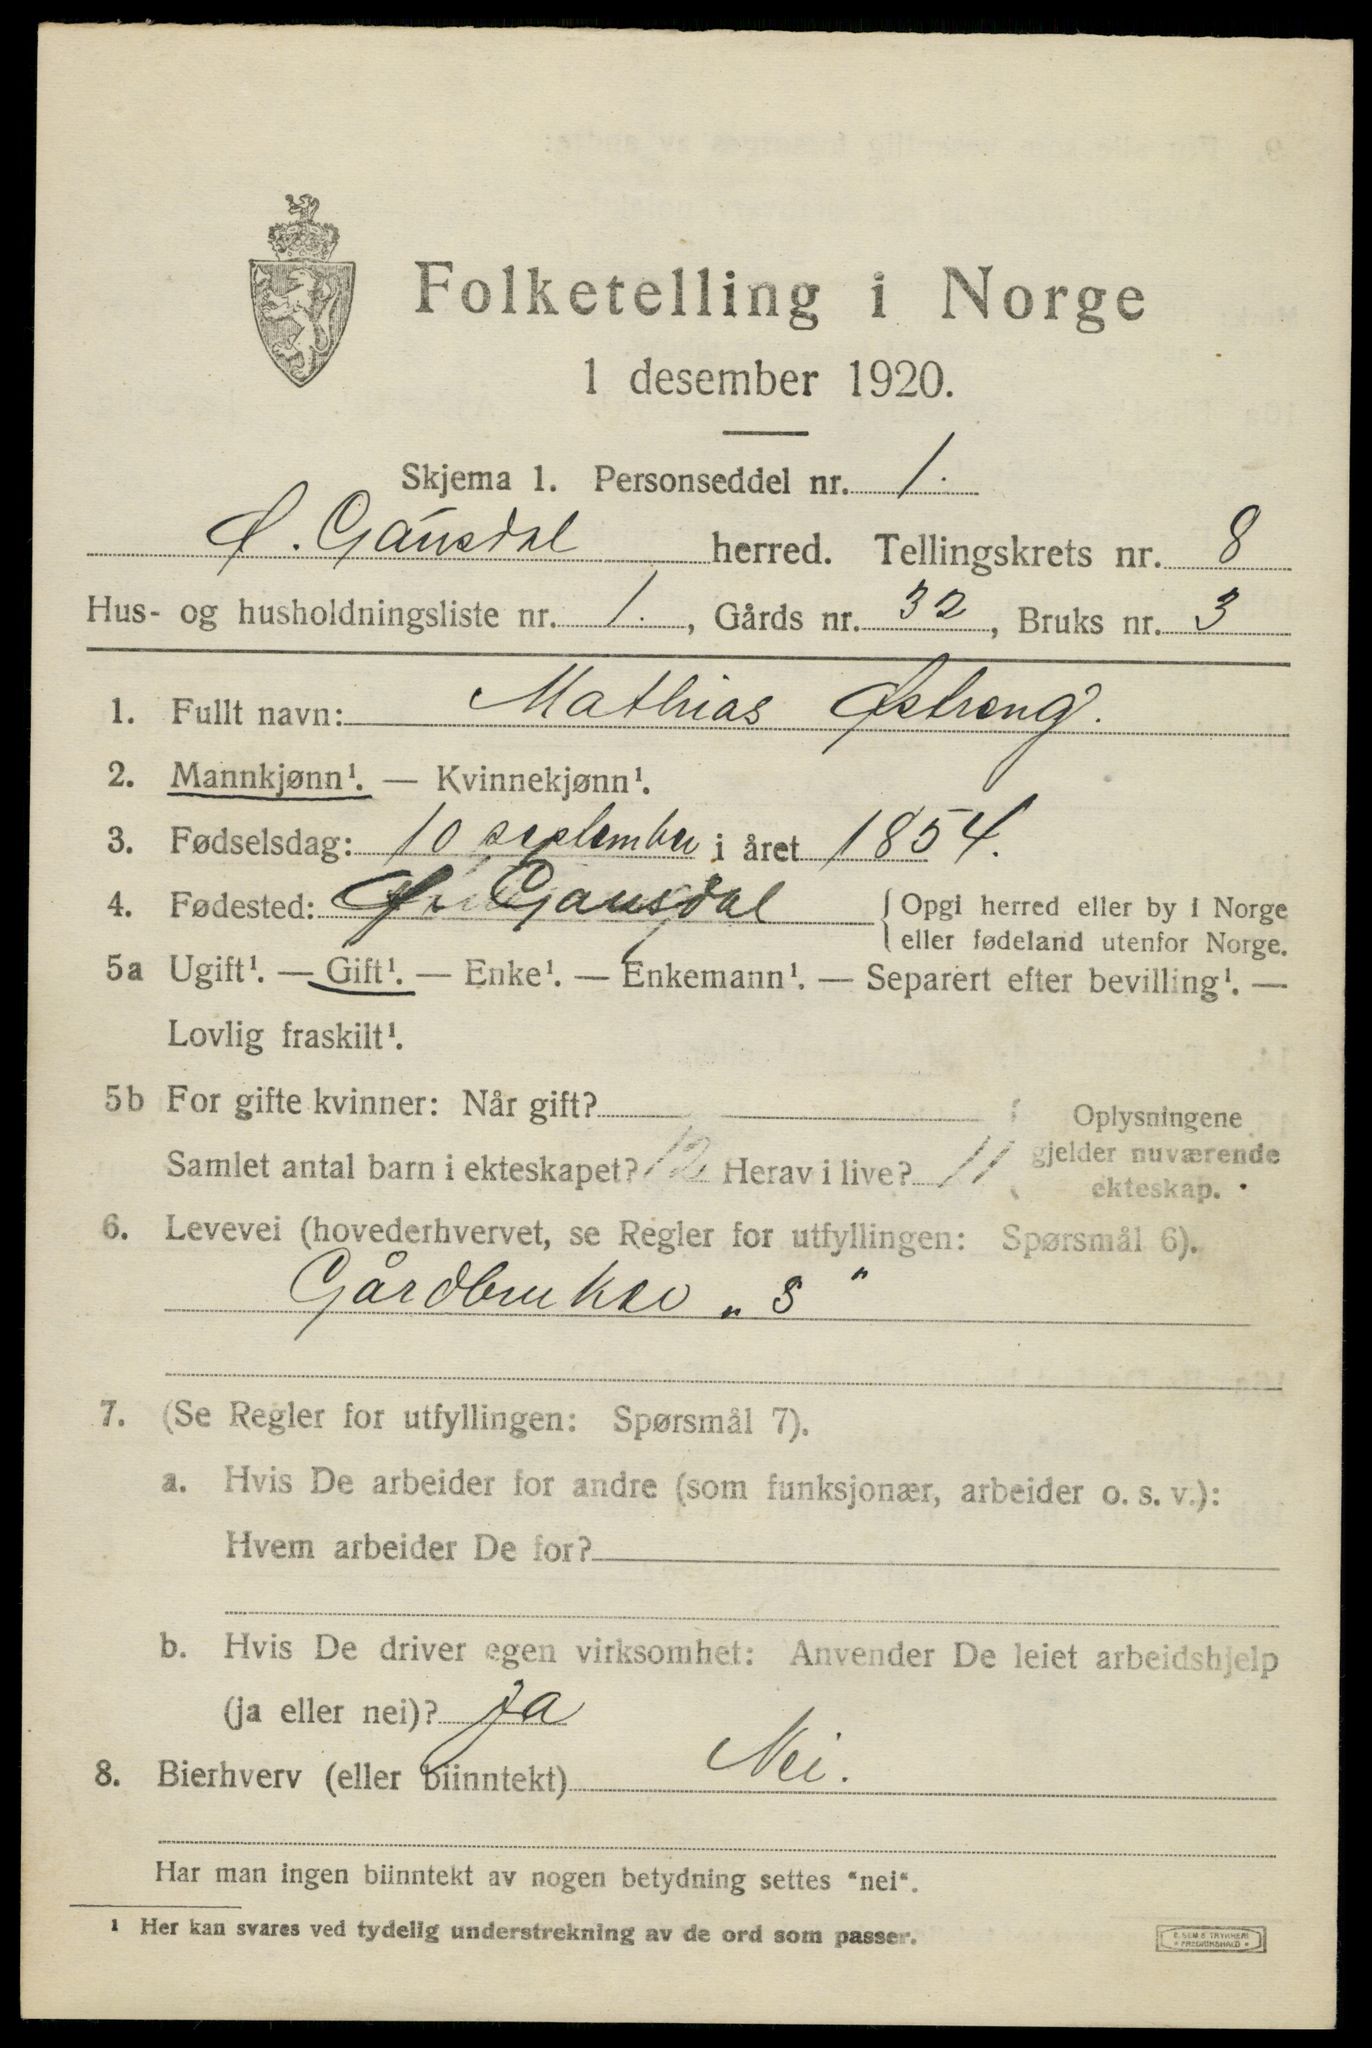 Folketelling i Norge
1 desember 1920.
Skjema 1. Personseddel nr. 1.
Ø. Gausdal herred. Tellingskrets nr. 8
Hus- og husholdningsliste nr. 1., Gårds nr. 32, Bruks nr. 3
1. Fullt navn: Mathias Østreng.
2. Mannkjønn¹. — Kvinnekjønn¹.
3. Fødselsdag: 10 september i året 1854.
4. Fødested: Ø. Gausdal { Opgi herred eller by i Norge
eller fødeland utenfor Norge.
5a Ugift¹. — Gift¹. — Enke¹. — Enkemann¹. — Separert efter bevilling¹. —
Lovlig fraskilt¹.
5b For gifte kvinner: Når gift?
Samlet antal barn i ekteskapet? 12 Herav i live? 11
Oplysningene
gjelder nuværende
ekteskap.
6. Levevei (hovederhvervet, se Regler for utfyllingen: Spørsmål 6).
Gårdbruker „S“
7. (Se Regler for utfyllingen: Spørsmål 7).
a. Hvis De arbeider for andre (som funksjonær, arbeider o. s. v.):
Hvem arbeider De for?
b. Hvis De driver egen virksomhet: Anvender De leiet arbeidshjelp
(ja eller nei)? Ja
8. Bierhverv (eller biinntekt) Nei.
Har man ingen biinntekt av nogen betydning settes "nei".
¹ Her kan svares ved tydelig understrekning av de ord som passer.
E. SEM'S TRYKKERI
FREDRIKSHALD